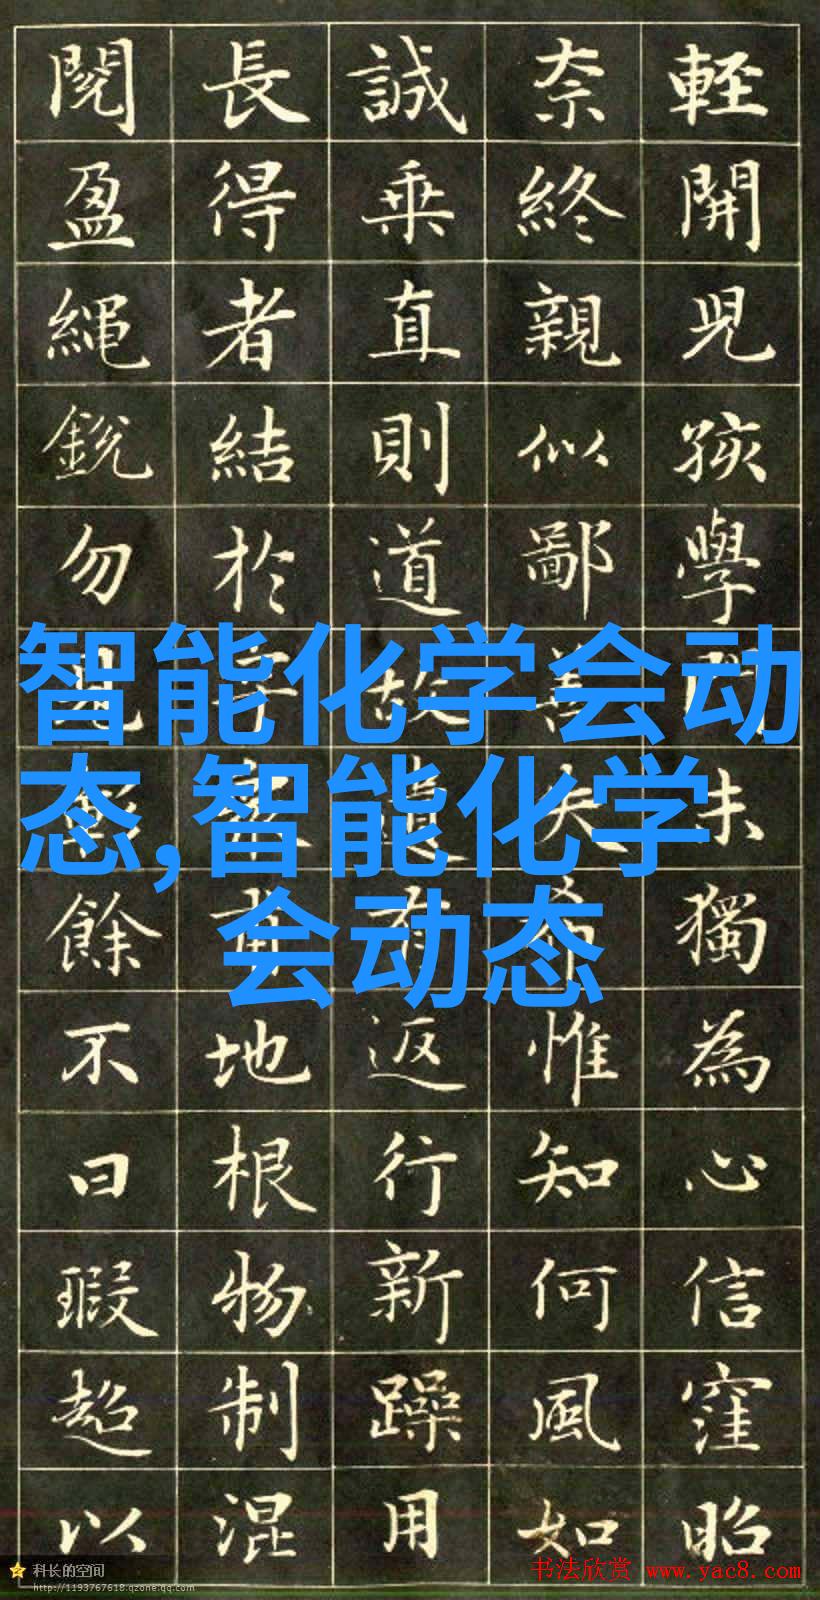 閱 長 誠 奈 輕
盈 得 乘 終 開
繩 者 直 親 兒
銳 結 則 似 孩
勿 於 道 鄙 學
智能化学会动
态,智能化学
会动态
餘 獨
不 地 返 惟 為
曰 根 行 知 心
瑕 物 新 何 信
超 制 躁 風 窪
以 混 用 如 昭
科长的空间
http://1193767618.qzone.qq.com
书法欣赏 www.yac8.com